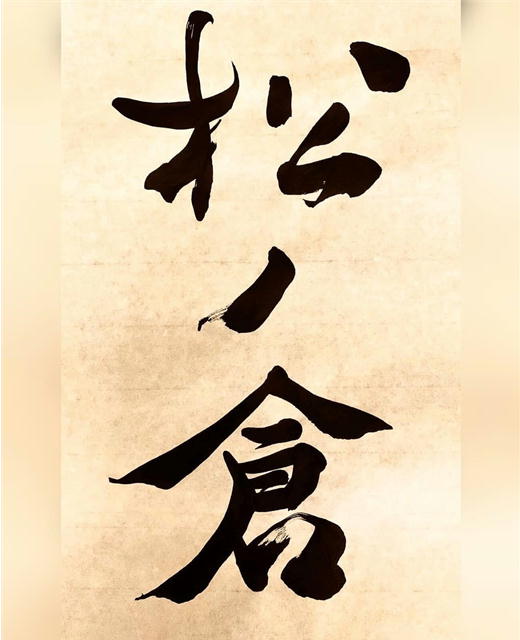 松ノ倉